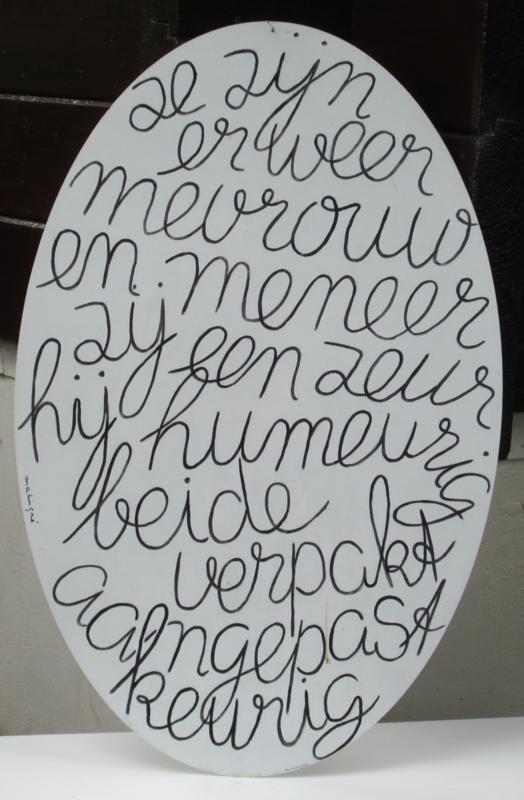 ze zyn
er weer
mevrouw
en meneer
zij een zeur
hij humeurig
beide
verpakt
aangepast
keurig